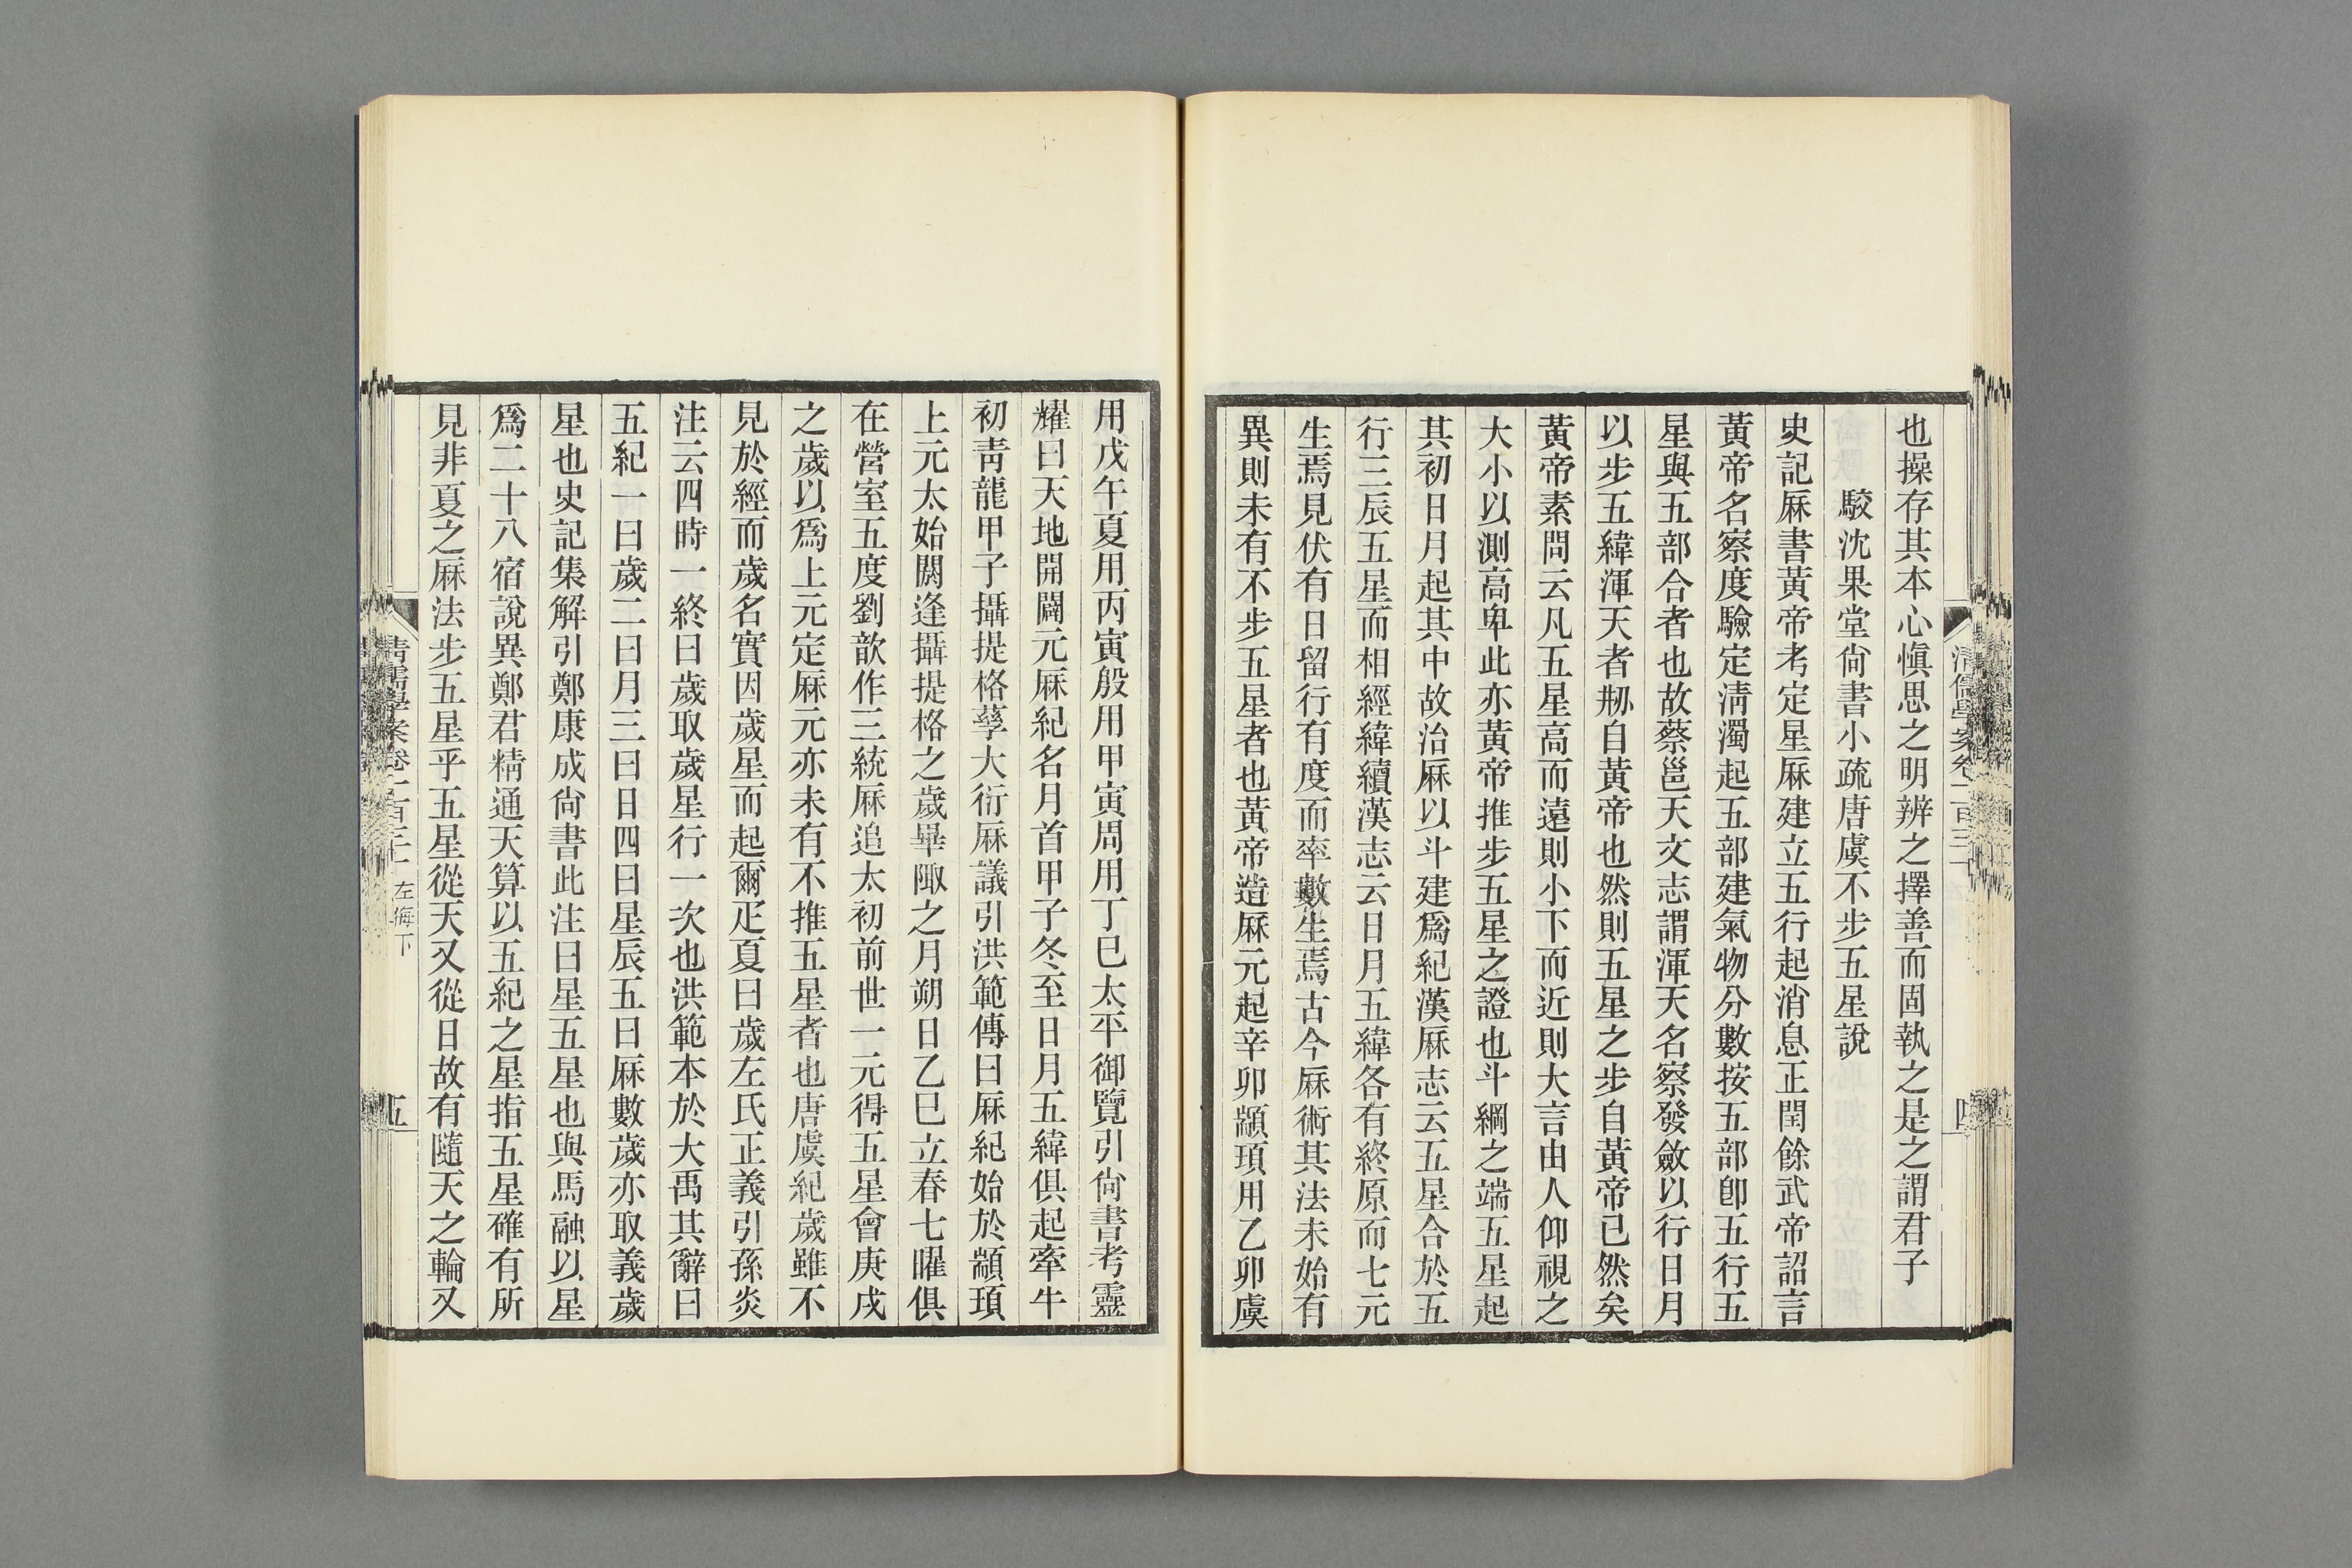 也操存其本心愼思之明辨之擇善而固執之是之謂君子
駮沈果堂尙書小疏唐虞不步五星說
史記厤書黃帝考定星厤建立五行起消息正閏餘武帝詔言
黃帝名察度驗定淸濁起五部建氣物分數按五部卽五行五
星與五部合者也故蔡邕天文志謂渾天名察發斂以行日月
以步五緯渾天者刱自黃帝也然則五星之步自黃帝已然矣
黃帝素問云凡五星高而遠則小下而近則大言由人仰視之
大小以測高卑此亦黃帝推步五星之證也斗綱之端五星起
其初日月起其中故治厤以斗建爲紀漢厤志云五星合於五
行三辰五星而相經緯續漢志云日月五緯各有終原而七元
生焉見伏有日留行有度而率數生焉古今厤術其法未始有
異則未有不步五星者也黃帝造厤元起辛卯顓頊用乙卯虞
用戊午夏用丙寅殷用甲寅周用丁巳太平御覽引尙書考靈
耀曰天地開闢元厤紀名月首甲子冬至日月五緯俱起牽牛
初靑龍甲子攝提格孳大衍厤議引洪範傳曰厤紀始於顓頊
上元太始閼逢攝提格之歲畢陬之月朔日乙巳立春七曜俱
在營室五度劉歆作三統厤追太初前世一元得五星會庚戌
之歲以爲上元定厤元亦未有不推五星者也唐虞紀歲雖不
見於經而歲名實因歲星而起爾疋夏曰歲左氏正義引孫炎
注云四時一終曰歲取歲星行一次也洪範本於大禹其辭曰
五紀一曰歲二曰月三曰日四曰星辰五曰厤數歲亦取義歲
星也史記集解引鄭康成尙書此注曰星五星也與馬融以星
爲二十八宿說異鄭君精通天算以五紀之星指五星確有所
見非夏之厤法步五星乎五星從天又從日故有隨天之輪又
淸儒學案卷一百三十 左海下
五